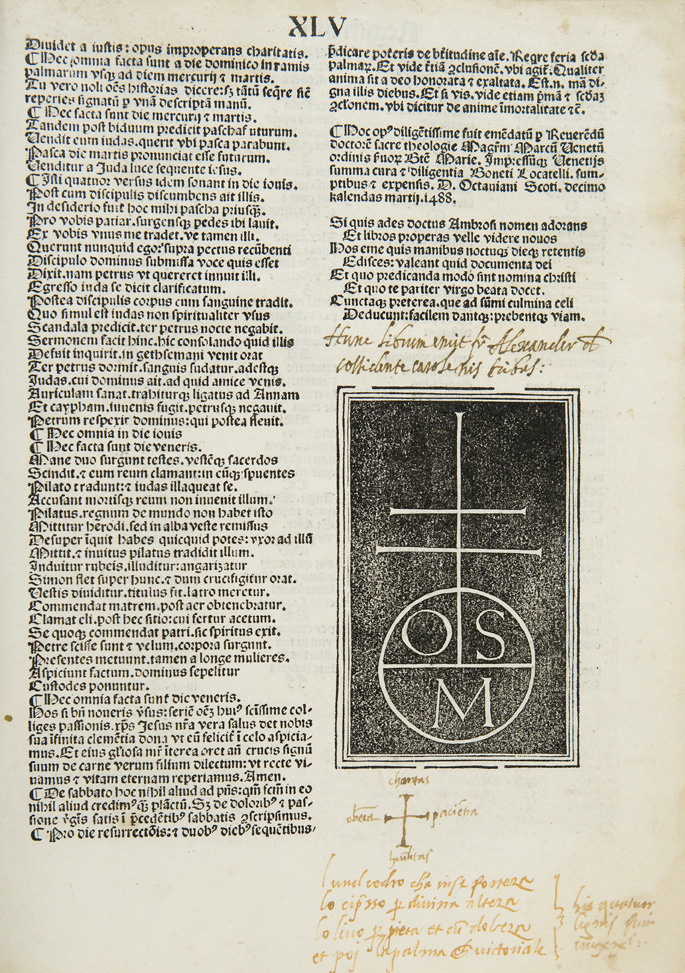 XLV
Diuidet a iustis: opus improperans charitatis.
¶ Hec omnia facta sunt a die dominico in ramis
palmarum vsqꝫ ad diem mercurij ⁊ martis.
Tu vero noli oēs historias dicere: sꝫ tātū seqͬre sic̄
reperies signatū ꝑ vnā descriptā manū.
¶ Hec facta sunt die mercurij ⁊ martis.
Tandem post biduum predicit pascha futurum.
Vendit eum iudas. querit vbi pasca parabunt.
Pasca die martis pronunciat esse futurum.
Venditur a Juda luce sequente iesus.
¶ Isti quatuor versus idem sonant in die iouis.
Post cum discipulis discumbens ait illis.
In desiderio fuit hoc mihi pascha priusqꝫ.
Pro vobis patiar. surgensqꝫ pedes ibi lauit.
Ex vobis vnus me tradet. ve tamen illi.
Querunt nunquid ego: supra pectus recūbenti
Discipulo dominus submissa voce quis esset
Dixit. nam petrus vt quereret innuit illi.
Egresso iuda se dicit clarificatum.
Postea discipulis corpus cum sanguine tradit.
Quo simul est iudas non spiritualiter vsus
Scandala predicit. ter petrus nocte negabit.
Sermonem facit hinc. hic consolando quid illis
Defuit inquirit. in gethsemani venit orat
Ter petrus dormit. sanguis sudatur. adestqꝫ
Judas. cui dominus ait. ad quid amice venis.
Auriculam sanat. trahiturqꝫ ligatus ad Annam
Et caypham. iuuenis fugit. petrusqꝫ negauit.
Petrum respexit dominus: qui postea fleuit.
¶ Hec omnia in die iouis
¶ Hec facta sunt die veneris.
Mane duo surgunt testes. vestēqꝫ sacerdos
Scindit. ⁊ eum reum clamant: in eūqꝫ spuentes
Pilato tradunt: ⁊ iudas illaqueat se.
Accusant mortisqꝫ reum non inuenit illum.
Pilatus. regnum de mundo non habet isto
Mittitur herodi. sed in alba veste remissus
Desuper īquit habes quicquid potes: vxor ad illū
Mittit. ⁊ inuitus pilatus tradidit illum.
Induitur rubeis. illuditur: angarizatur
Simon flet super hunc. ⁊ dum crucifigitur orat.
Vestis diuiditur. titulus fit. latro meretur.
Commendat matrem. post aer obtenebratur.
Clamat eli. post hec sitio: cui fertur acetum.
Se quoqꝫ commendat patri. sic spiritus exit.
Petre scisse sunt ⁊ velum. corpora surgunt.
Presentes metuunt. tamen a longe mulieres.
Aspiciunt factum. dominus sepelitur
Custodes ponuntur.
¶ Hec omnia facta sunt die veneris.
Hos si bn̄ noueris ṽsus: seriē oēꝫ huiꝰ scīssime col-
liges passionis. xp̄s Jesus nr̄a vera salus det nobis
sua īfinita clemētia dona vt eū feliciť ī celo aspicia-
mus. Et eius gl̄iosa mr̄ īterea oret añ crucis signū
suum de carne verum filium dilectum: vt recte vi-
uamus ⁊ vitam eternam reperiamus. Amen.
¶ De sabbato hoc nihil aliud ad pn̄s: qm̄ scm̄ in eo
nihil aliud credimꝰ qꝫ̄ plāctū. Sꝫ de doloribꝰ ⁊ pas-
sione ṽgīs satis ī p̄cedētibꝰ sabbatis ꝯscripsimus.
¶ Pro die resurrectōis: ⁊ duobꝰ diebꝰ sequētibus
p̄dicare poteris de btītudine aīe. Reqͬre feria scďa
palmaꝝ. Et vide ť̄iā ꝯclusionē. vbi agiť. Qualiter
anima sit a deo honorata ⁊ exaltata. Est. n. mā di-
gna illis diebus. Et si vis. vide etiam p̄mā ⁊ secďaꝫ
ꝯclonem. vbi dicitur de anime īmortalitate ⁊c̄.
¶ Hoc opꝰ diligētissime fuit emēdatū ꝑ Reuerēdū
doctorē sacre theologie Magr̄m Marcū Venetū
ordinis ẜuoꝝ Btē Marie. Impressūqꝫ Venetijs
summa cura ⁊ diligentia Boneti Locatelli. sum-
ptibus ⁊ expensis. D. Octauiani Scoti. decimo
kalendas martij. 1488.
Si quis ades doctus Ambrosi nomen adorans
Et libros properas velle videre nouos
Hos eme quis manibus noctuqꝫ dieqꝫ retentis
Edisces: valeant quid documenta dei
Et quo predicanda modo sint nomina christi
Et quo te pariter virgo beata docet.
Cunctaqꝫ preterea. que ad sūmi culmina celi
Deducunt: facilem dantqꝫ: prebentqꝫ viam.
Hunc librum emit fr̄ Alexander
O S
M
charitas
obētia paciētia
humilitas
lo cipresso ꝑ divina alteza
et poi la palma victoriale
his quatuor
lignis fuit